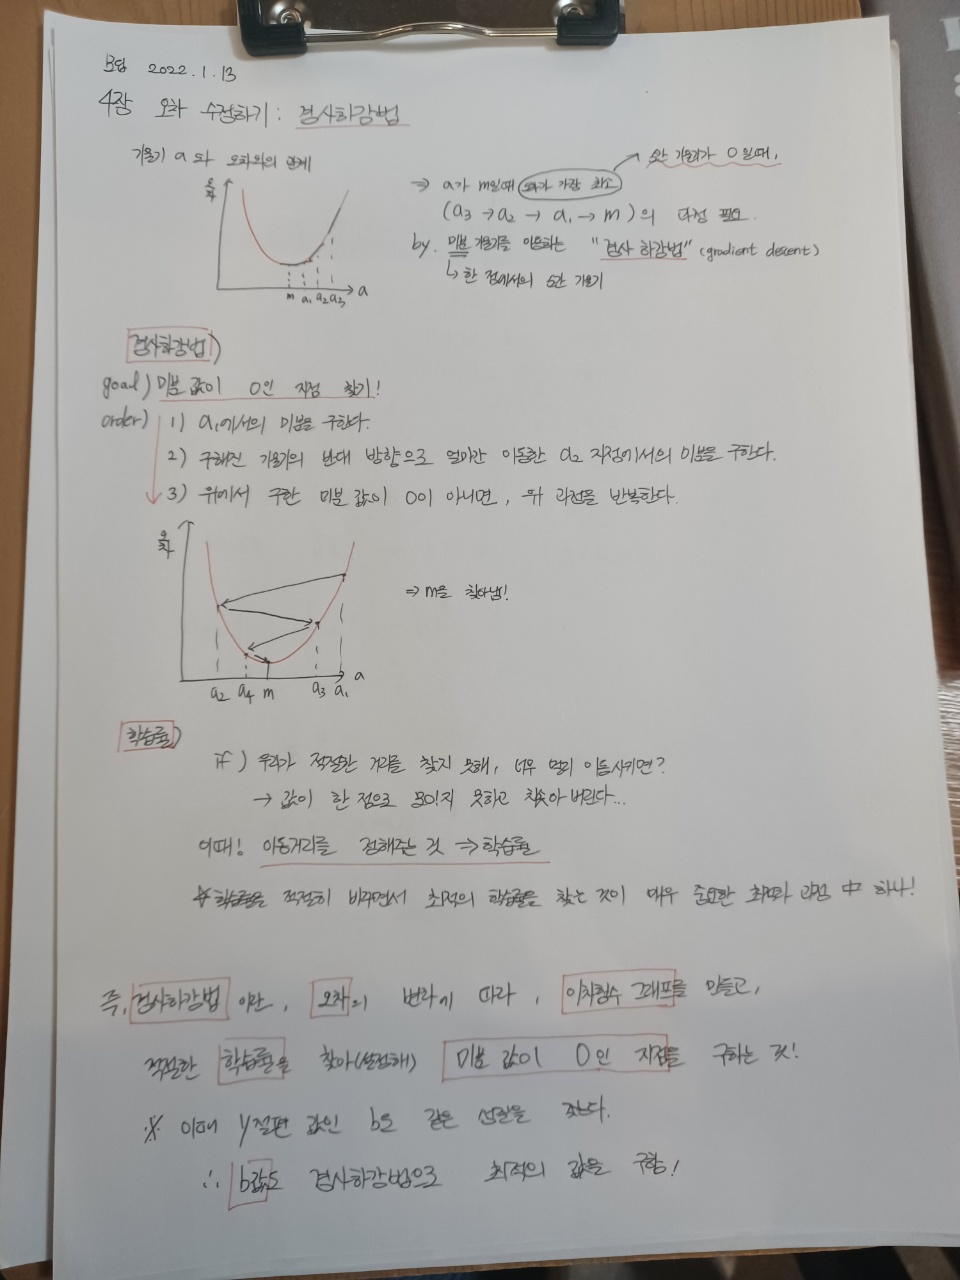 모답 2022.1.13
4장 오차 수정하기 : 경사하강법
기울기 a와 오차와의 관계
오차
m a₁ a₂ a₃ a
순간 기울기가 0일때,
⇒ a가 m일때 오차가 가장 최소
(a₃ → a₂ → a₁ → m)의 과정 필요.
by. 미분 기울기를 이용하는 "경사 하강법" (gradient descent)
↳ 한 점에서의 순간 기울기
경사하강법)
goal) 미분 값이 0인 지점 찾기!
order) 1) a₁에서의 미분을 구한다.
2) 구해진 기울기의 반대 방향으로 얼마간 이동한 a₂ 지점에서의 미분을 구한다.
3) 위에서 구한 미분 값이 0이 아니면, 위 과정을 반복한다.
오차
⇒ m을 찾아냄!
a₂ a₄ m a₃ a₁ a
학습률)
if) 우리가 적절한 거리를 찾지 못해, 너무 멀리 이동시키면?
→ 값이 한 점으로 모이지 못하고 치솟아 버린다...
이때! 이동거리를 정해주는 것 → 학습률
* 학습률을 적절히 바꾸면서 최적의 학습률을 찾는 것이 매우 중요한 최적화 과정 中 하나!
즉, 경사하강법 이란, 오차의 변화에 따라, 이차함수 그래프를 만들고,
적절한 학습률을 찾아(설정해) 미분 값이 0인 지점을 구하는 것!
※ 이때 y절편 값인 b도 같은 성질을 갖는다.
∴ b값도 경사하강법으로 최적의 값을 구함!